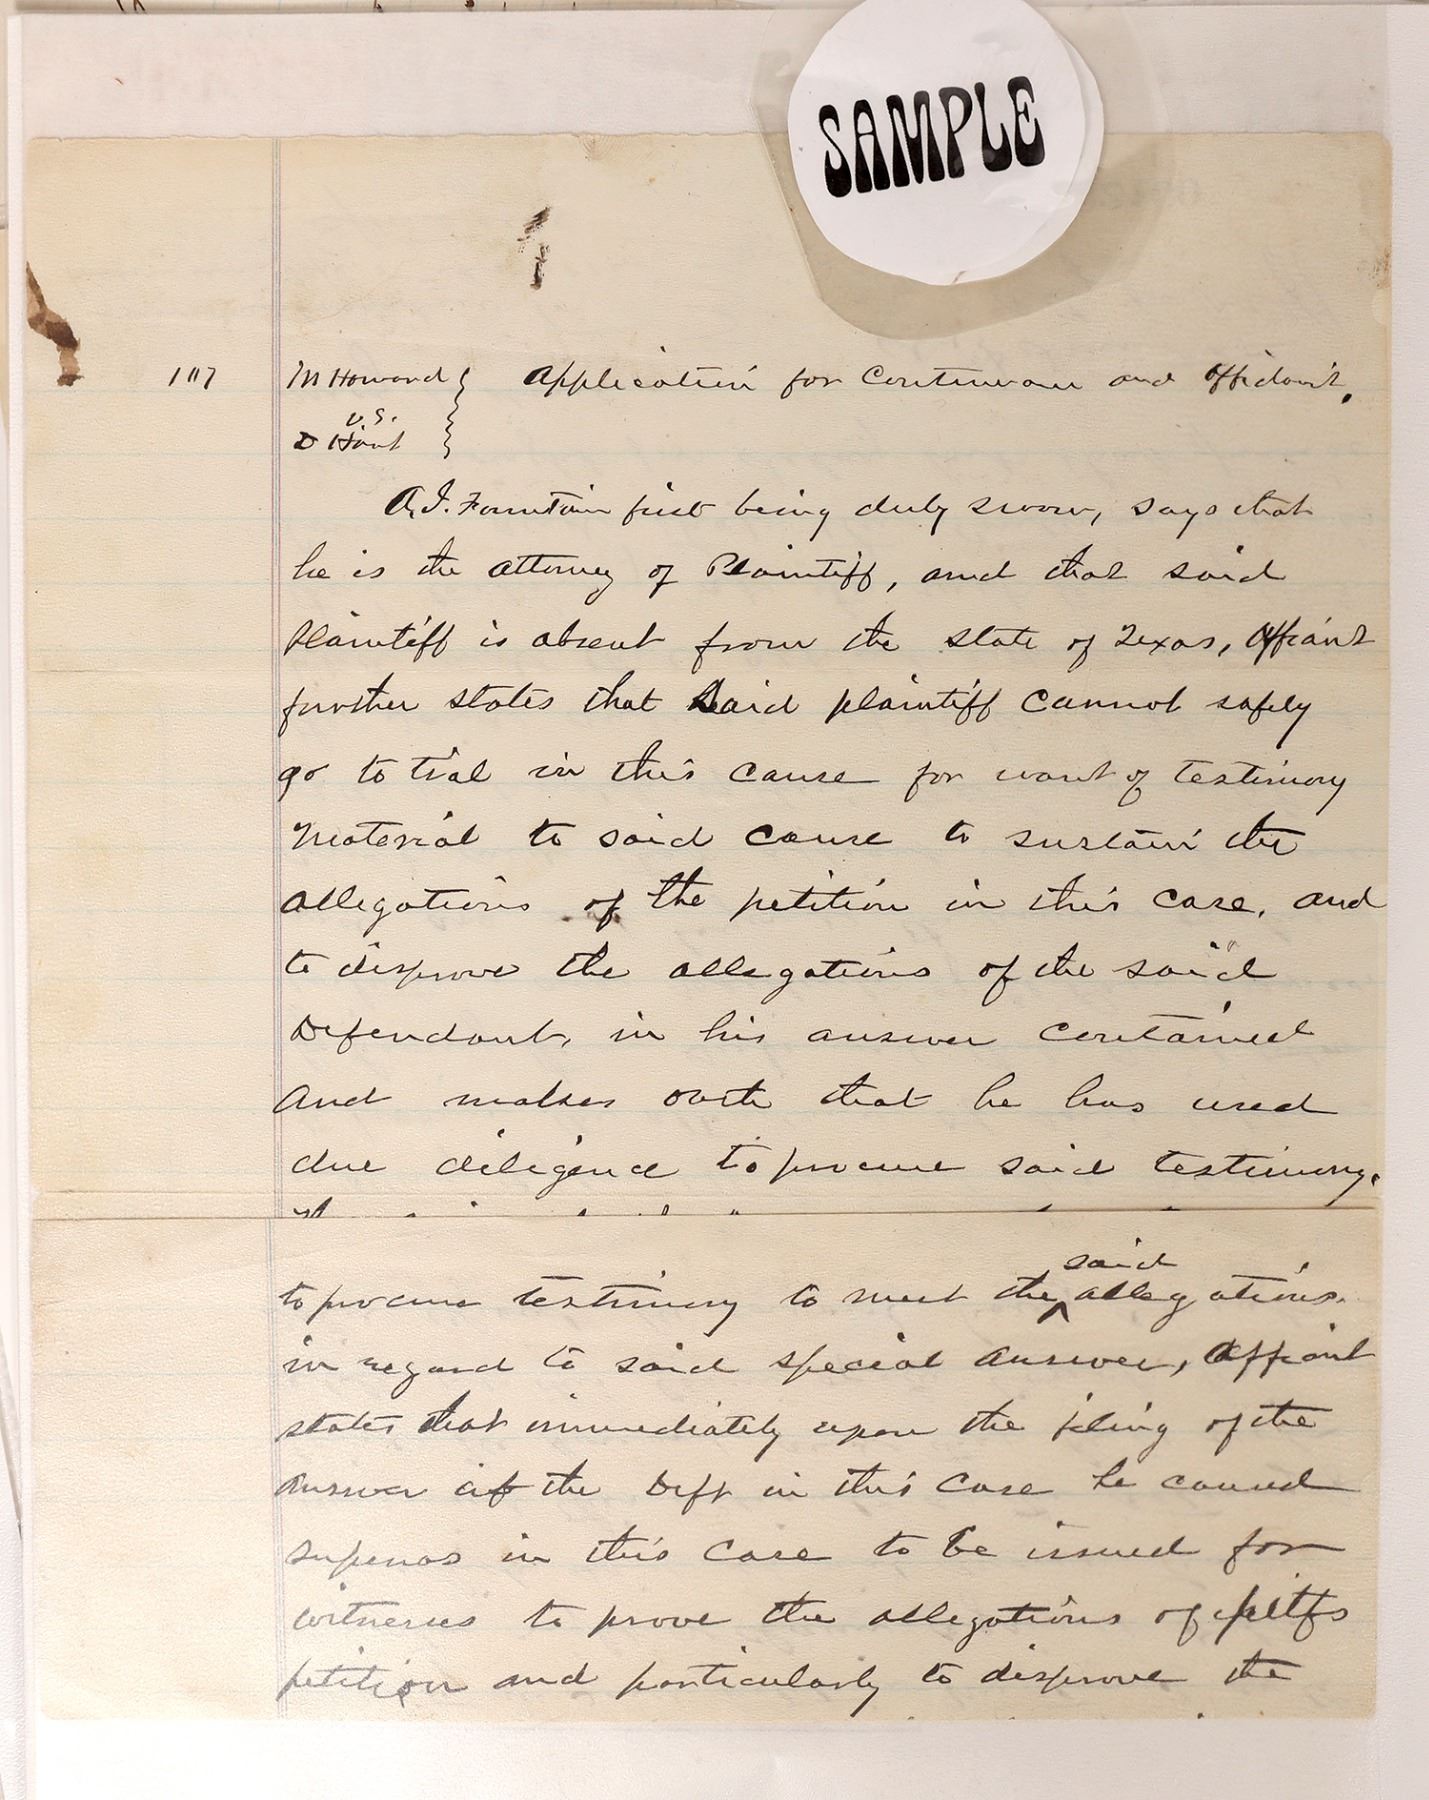 SAMPLE
117 M Howard Application for Continuance and Affidavit.
v.s.
D Hart
A.J. Fountain first being duly sworn, says that
he is the attorney of Plaintiff, and that said
Plaintiff is absent from the state of Texas, Affiant
further states that said plaintiff cannot safely
go to trial in this cause for want of testimony
material to said cause to sustain the
allegations of the petition in this case, and
to disprove the allegations of the said
Defendant, in his answer contained
And makes oath that he has used
due diligence to procure said testimony.
said
to procure testimony to meet the allegations.
in regard to said special answer, Affiant
states that immediately upon the filing of the
answer of the Deft in this case he caused
supenas in this case to be issued for
witnesses to prove the allegations of pltffs
petition and particularly to disprove the